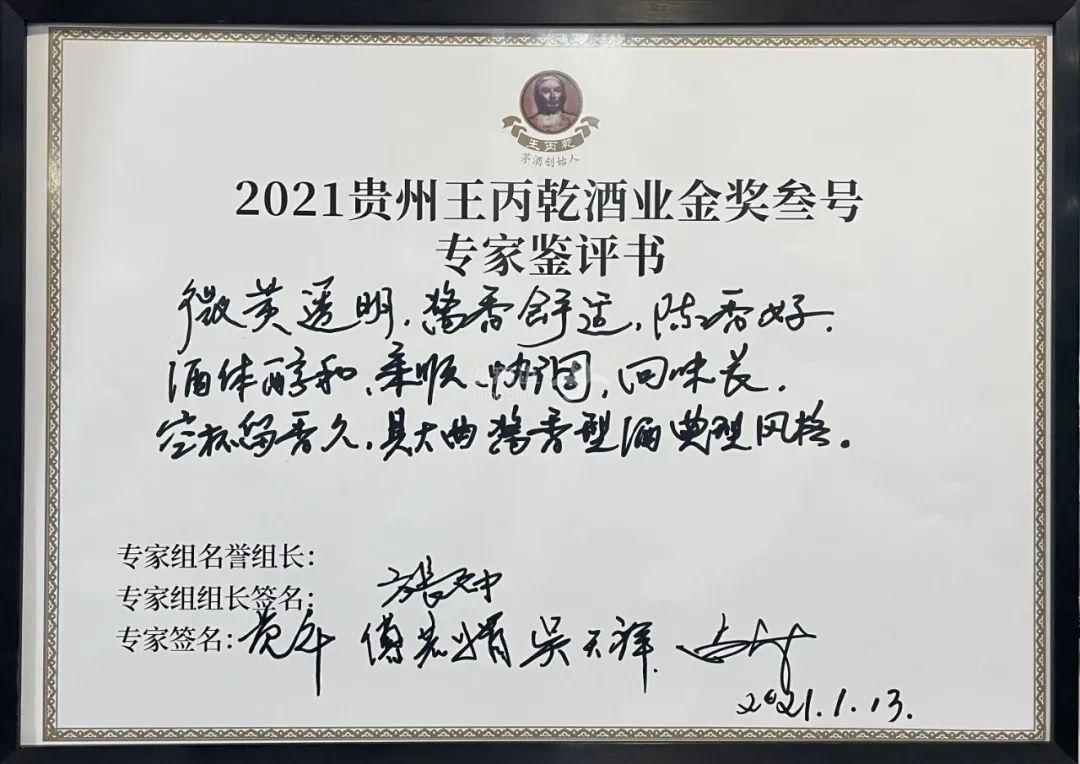 王丙乾
茅酒创始人
2021贵州王丙乾酒业金奖叁号
专家鉴评书
微黄透明，酱香舒适，陈香好．
酒体醇和、柔顺、协调，回味长．
空杯留香久，具大曲酱香型酒典型风格。
专家组名誉组长：
专家组组长签名：
专家签名：
吴天祥
2021.1.13.